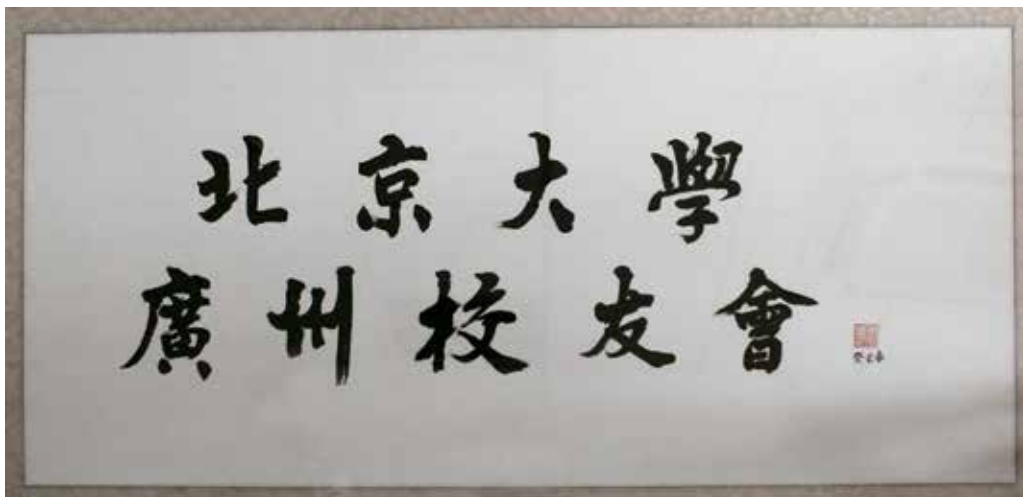 北京大學
廣州校友會